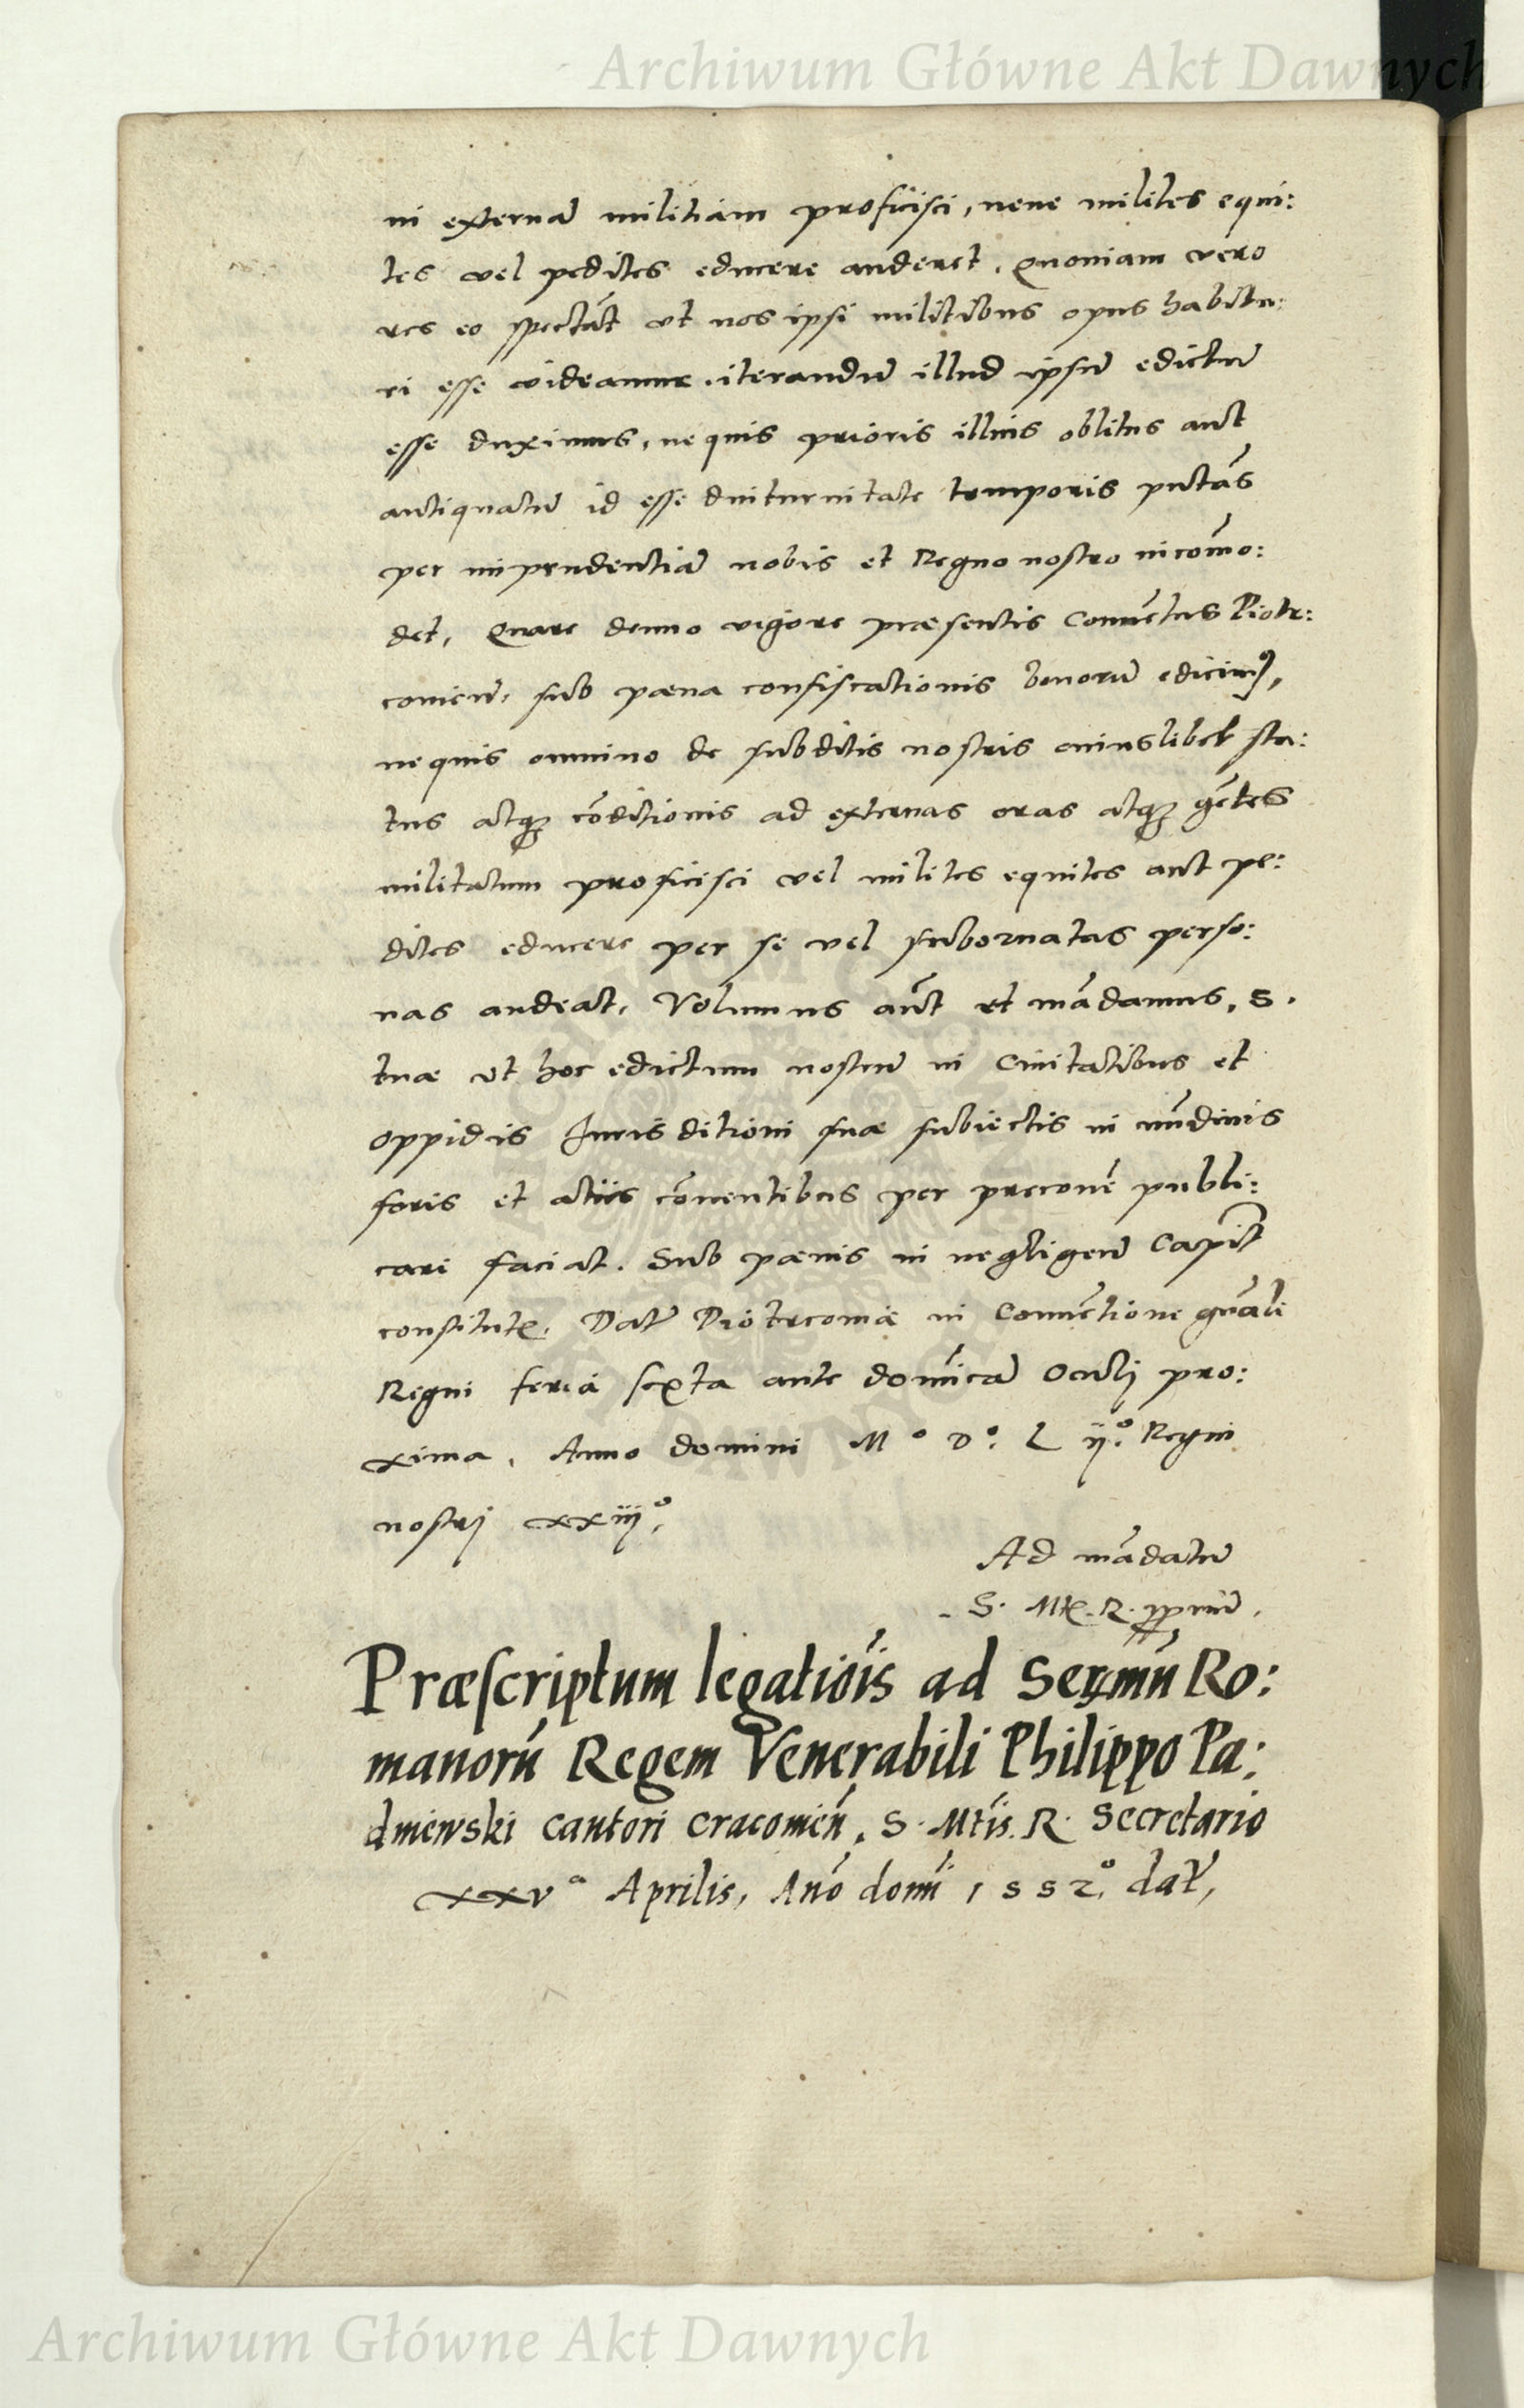 Archiwum Główne Akt Dawnych
in externā militiam proficisci, neue milites equi:
tes vel pedites educere auderet. Quoniam vero
res eo spectāt vt nos ipsi militibus opus habitu:
ri esse videamur. iterandū illud ipsū edictū
esse duximus, ne quis prioris illius oblitus aut
antiquatū id esse diuturnitate temporis putās
per imprudentiā nobis et Regno nostro incōmo:
det, Quare denuo vigore præsentis Conuētus Piotr:
couien̄, sub pæna confiscationis bonorū edicimꝰ,
ne quis omnino de subditis nostris cuiuslibet sta:
tus atqꝫ cōditionis ad externas oras atqꝫ gētes
militatum proficisci vel milites equites aut pe:
dites educere per se vel subornatas perso:
nas audeat, Volumus aūt et mādamus, S.
tuæ vt hoc edictum nostrū in Ciuitatibus et
oppidis Jurisditioni suæ subiectis in nūdinis
foris et aliis cōuentibus per preconē publi:
cari faciat. Sub pænis in negligen̄ Capit̄
constitut̄. Dat̄ Piotrcouiæ in Conuētione gn̄ali
Regni feria sexta ante domīcā Oculi pro:
xima, Anno domini M° D°. L ij°. Regni
nostrj xxiij°,
Ad mādatū
S. Mt̄. R. ppriū.
Præscriptum legatiōis ad Serꝫmū Ro:
manorū Regem Venerabili Philippo Pa:
dniewski Cantori Cracouieñ, S. Mtis. R. Secretario
xxvᵃ Aprilis, Año domī 1552° dat̄,
Archiwum Główne Akt Dawnych